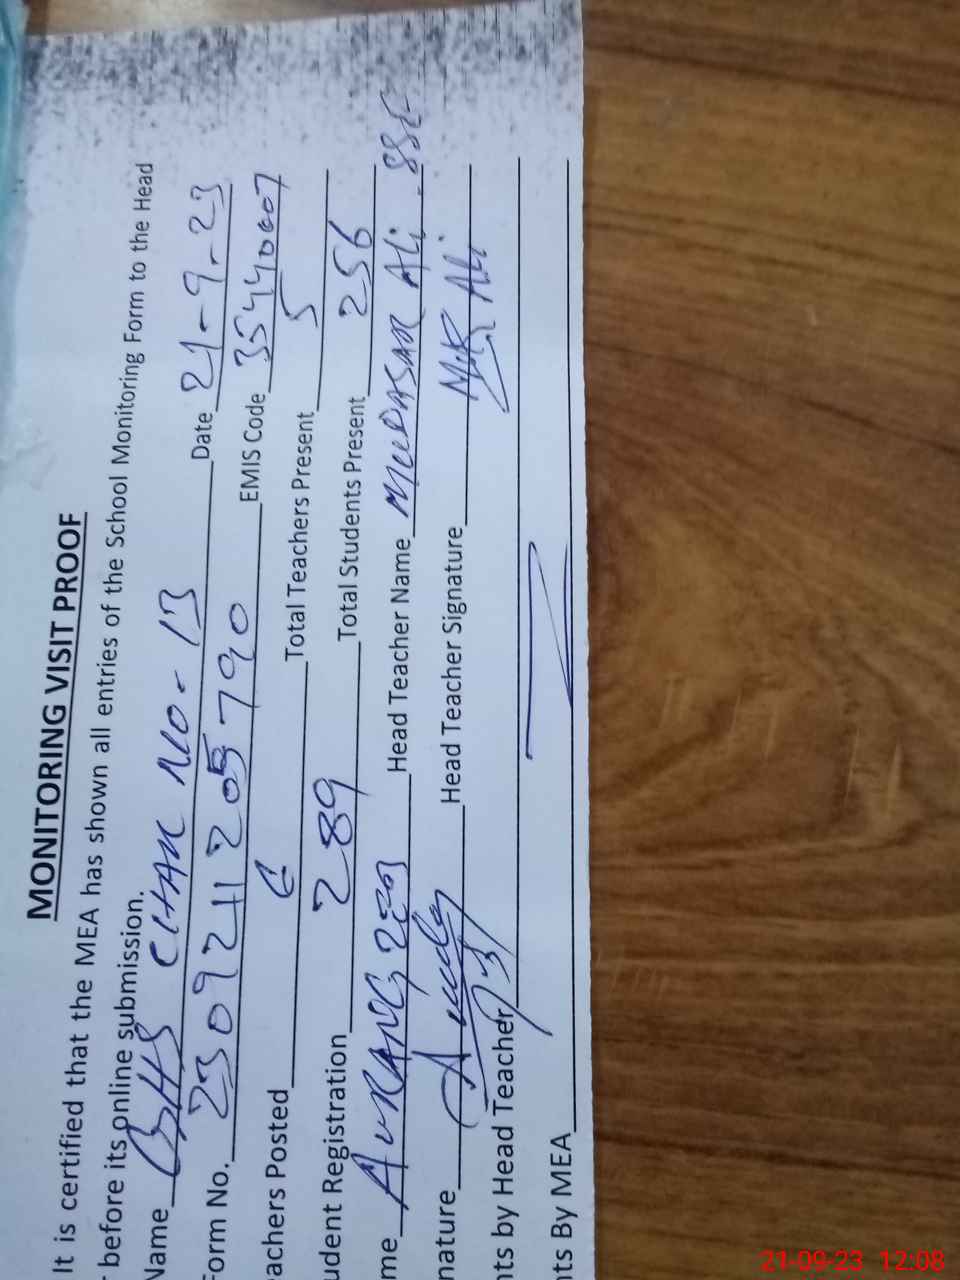 MONITORING VISIT PROOF
It is certified that the MEA has shown all entries of the School Monitoring Form to the Head
before its online submission.
Name GHS CHAK NO. 13 Date 21-9-23
Form No. 230921205790 EMIS Code 35440007
achers Posted 6 Total Teachers Present 5
udent Registration 289 Total Students Present 256
me AURANGZEB Head Teacher Name MUDASAR Ali SSE
nature Head Teacher Signature M.R Ali
nts by Head Teacher
nts By MEA
21-09-23 12:08